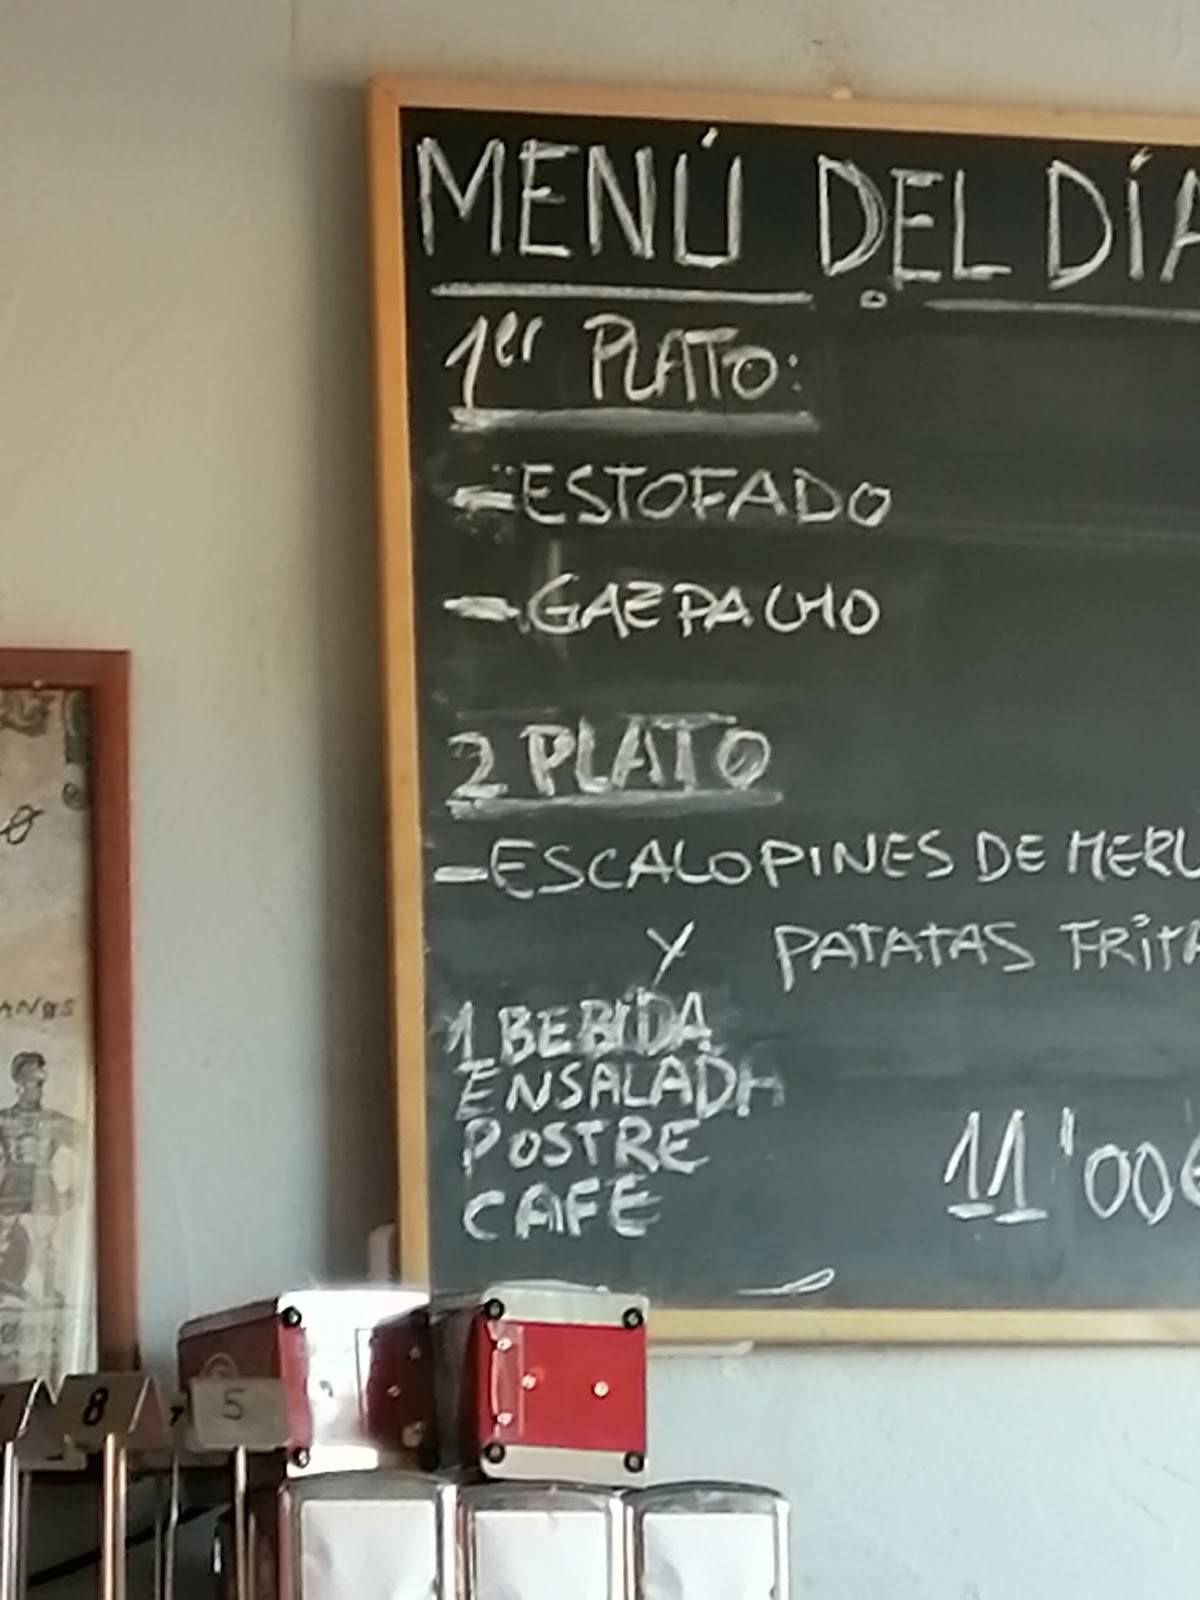 MENÚ DEL DÍA
1er PLATO:
-ESTOFADO
-GAZPACHO
2 PLATO
-ESCALOPINES DE MERLU
Y PATATAS FRITA
1 BEBIDA
ENSALADA
POSTRE
CAFE
11'00€
ANOS
8
7
5